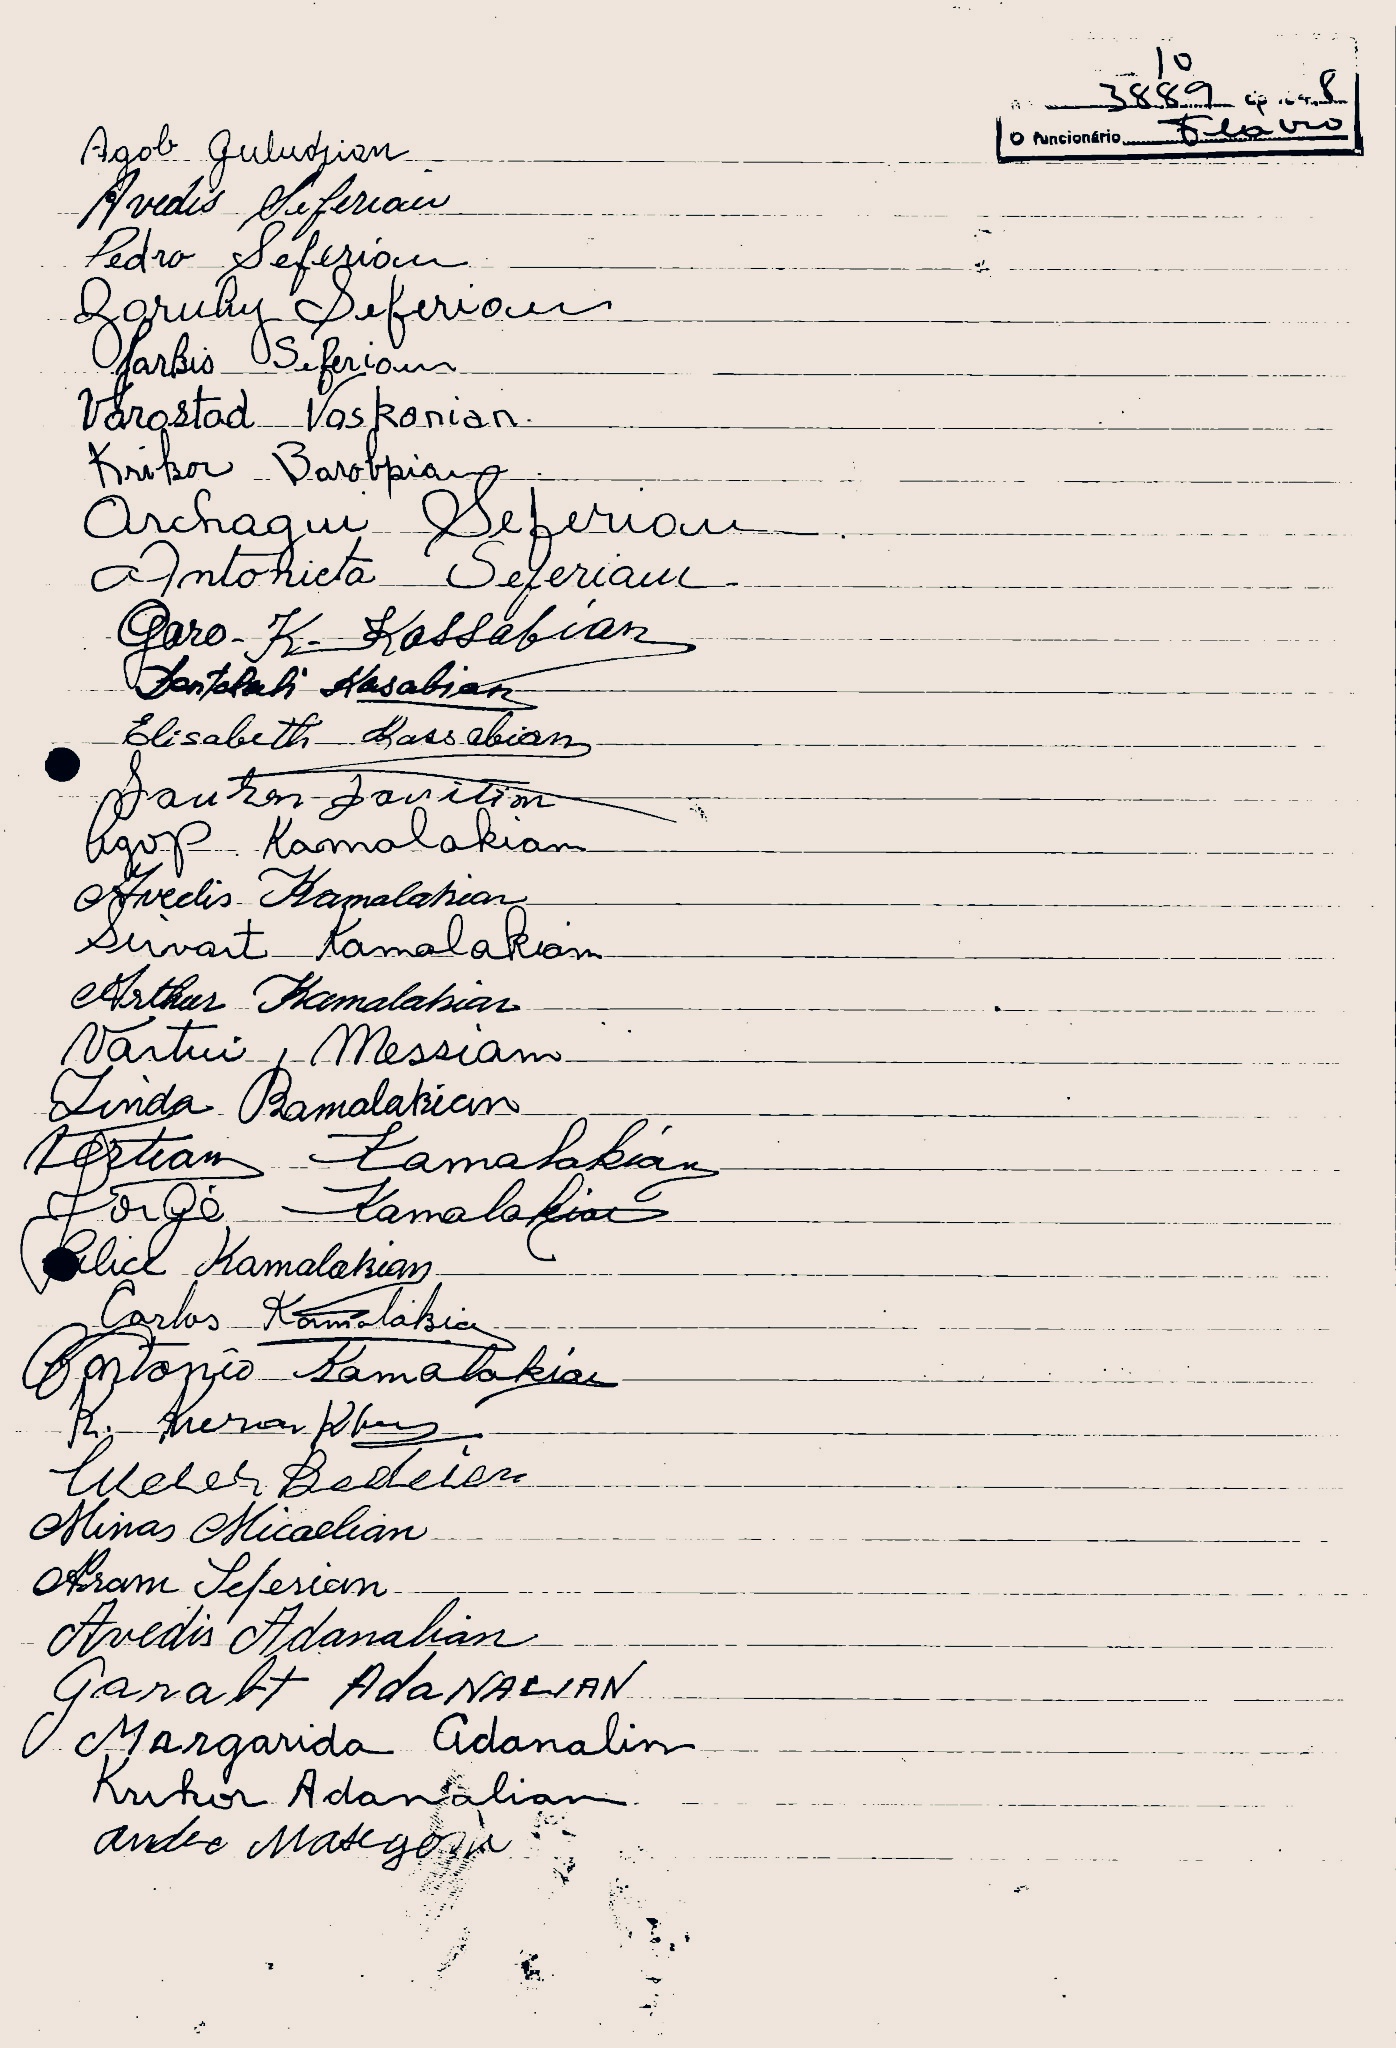 10
3889
O funcionário Flavio
Agob Guludjian
Avedis Seferian
Pedro Seferian
Zaruhy Seferian
Sarkis Seferian
Varastad Voskonian
Krikor
Archagui Seferian
Antonieta Seferian
Garo K. Kassabian
Kasabian
Elisabeth Kassabian
Agop Kamalakian
Avedis Kamalakian
Sirvart Kamalakian
Arthur Kamalakian
Vartui Messiam
Linda Kamalakian
Kamalakian
Jorge Kamalakian
Alice Kamalakian
Carlos Kamalakian
Antonio Kamalakian
K.
Minas Micaelian
Aram Seferian
Avedis Adanalian
Garabt AdaNALIAN
Margarida Adanalin
Krikor Adanalian
Andre